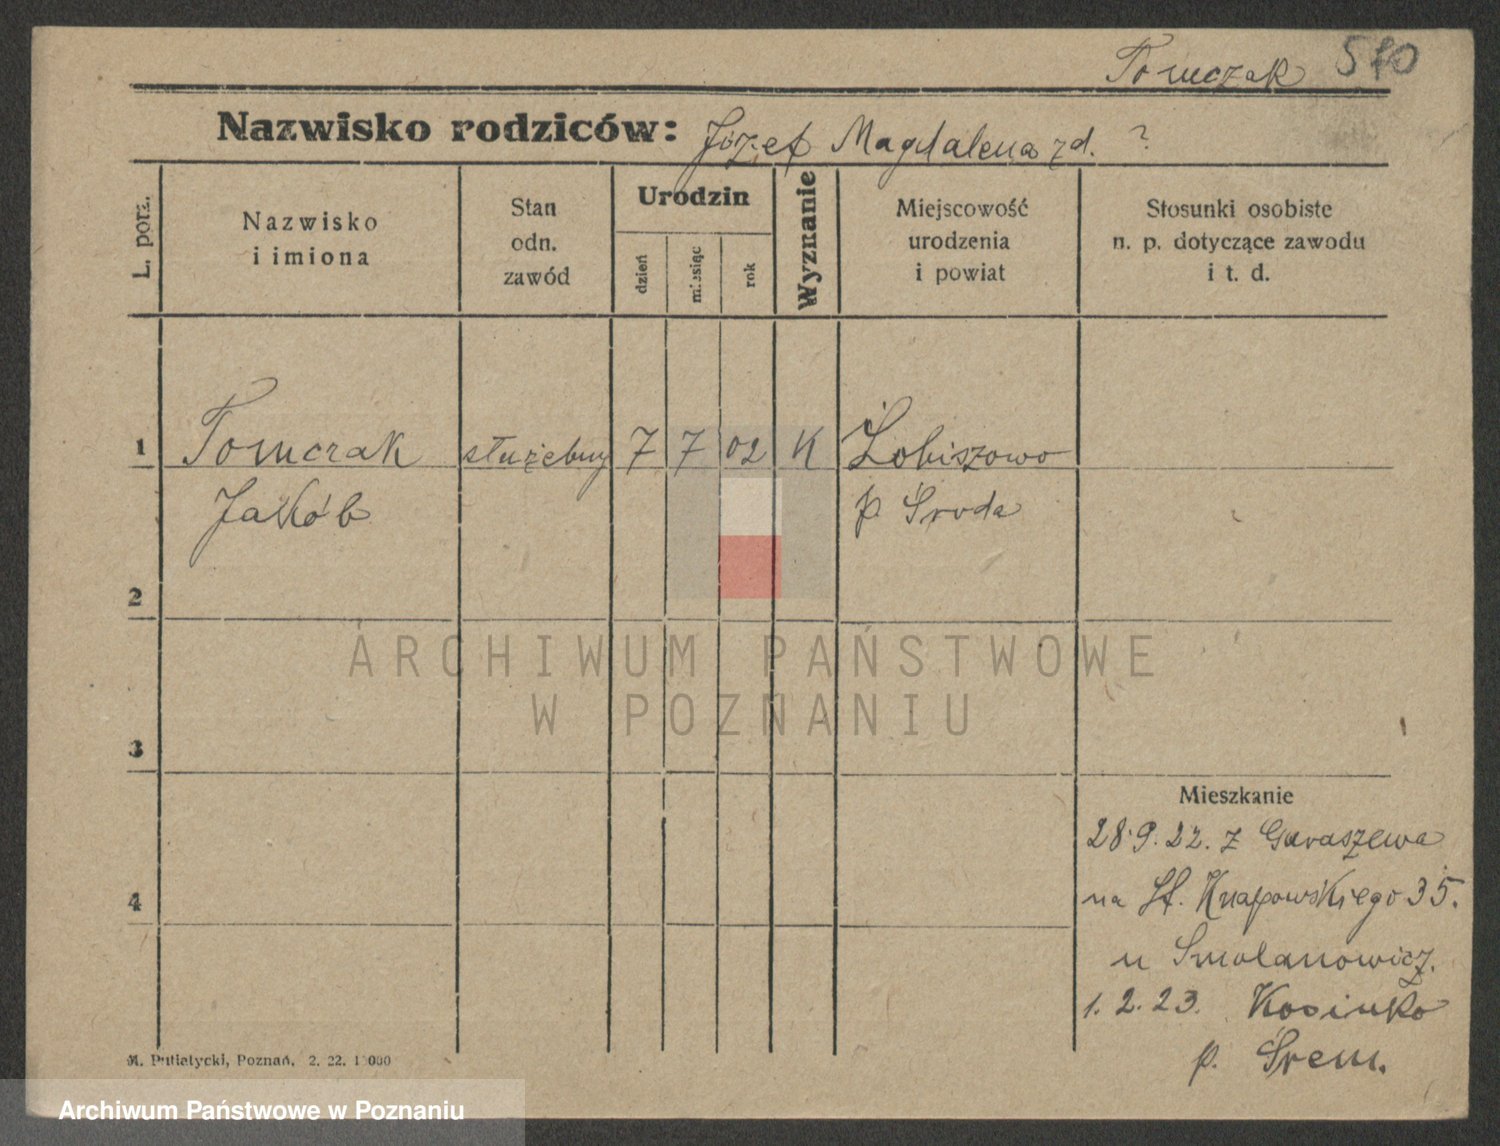 Tomczak 570
Nazwisko rodziców: Józef Magdalena zd. ?
L. porz.
Nazwisko
i imiona
Stan
odn.
zawód
Urodzin
dzień
miesiąc
rok
Wyznanie
Miejscowość
urodzenia
i powiat
Stosunki osobiste
n. p. dotyczące zawodu
i t. d.
1 Tomczak służebny 7 7 02 K Żabiszowo
Jakób p. Środa
2
3
4
Mieszkanie
28.9.22. z Garaszewa
na Sf. Knapowskiego 35.
u Smolanowicz.
1.2.23. Kosinko
p. Śrem.
M. Putiatycki, Poznań. 2. 22. 10000
ARCHIWUM PAŃSTWOWE
W POZNANIU
Archiwum Państwowe w Poznaniu